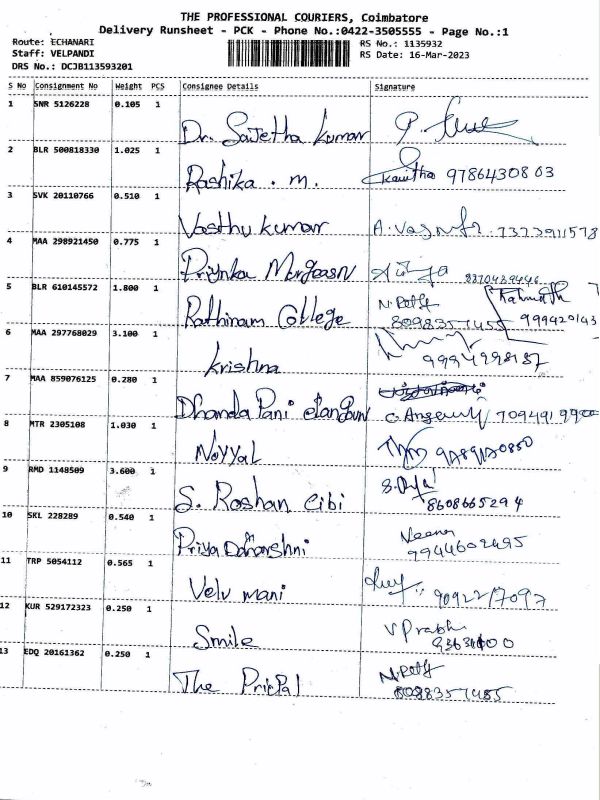 THE PROFESSIONAL COURIERS, Coimbatore
Delivery Runsheet - PCK - Phone No.:0422-3505555 - Page No.:1
Route: ECHANARI RS No.: 1135932
Staff: VELPANDI RS Date: 16-Mar-2023
DRS No.: DCJB113593201
S No Consignment No Weight PCS Consignee Details Signature
1 SNR 5126228 0.105 1
Dr. Sajetha Kumar
2 BLR 500818330 1.025 1
Rashika . m. Kavitha 9786430803
3 SVK 20110766 0.510 1
Vasthu kumar
4 MAA 298921450 0.775 1
Priynka Murgeasn 8370439446
5 BLR 610145572 1.800 1
Rathinam College 8098357485 999420143
6 MAA 297768029 3.100 1
krishna
7 MAA 859076125 0.280 1
Dhanda Pani elangoun
8 MTR 2305108 1.030 1
Noyyal
9 RMD 1148509 3.600 1
S. Roshan Cibi 8608665294
10 SKL 228289 0.540 1
Priya Dharshni Veena
9944602495
11 TRP 5054112 0.565 1
Velu mani
12 KUR 529172323 0.250 1
Smile V Prabhu
13 EDQ 20161362 0.250 1
The PricPal 8098357485